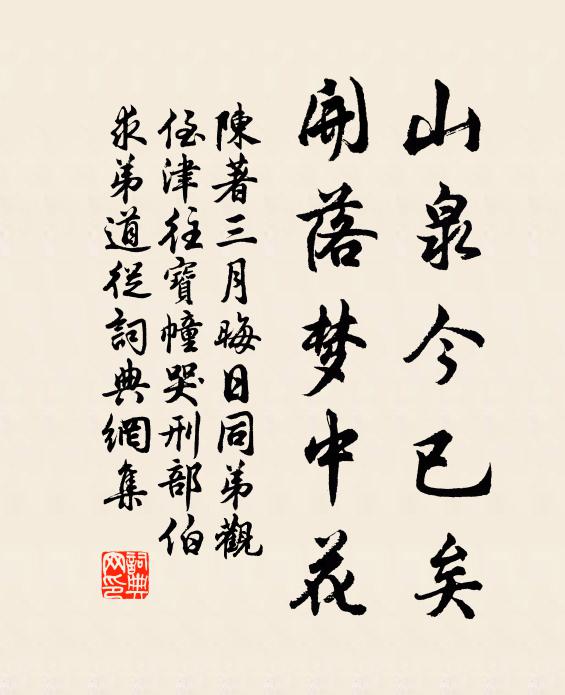 山泉今已矣
開落梦中花
陳著三月晦日同弟觀
侄津往寶幢哭刑部伯
求弟道從詞典網集
詞典网印